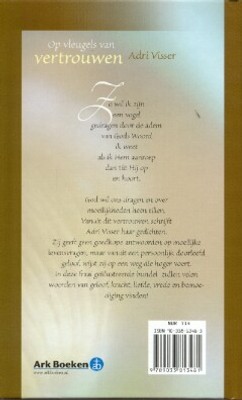 Op vleugels van
vertrouwen Adri Visser
Zo wil ik zijn
een vogel
gedragen door de adem
van Gods Woord
ik weet
als ik Hem aanroep
dat Hij
en hoort.
God wil ons dragen en over
moeilijkheden heen tillen.
Vanuit dit vertrouwen schrijft
Adri Visser haar gedichten.
Zij geeft geen goedkope antwoorden op moeilijke
levensvragen, maar vanuit een persoonlijk doorleefd
geloof, wijst zij op een weg die hoger voert.
In deze fraai geïllustreerde bundel zullen velen
woorden van geloof, kracht, liefde, vrede en bemoe-
diging vinden!
Ark Boeken